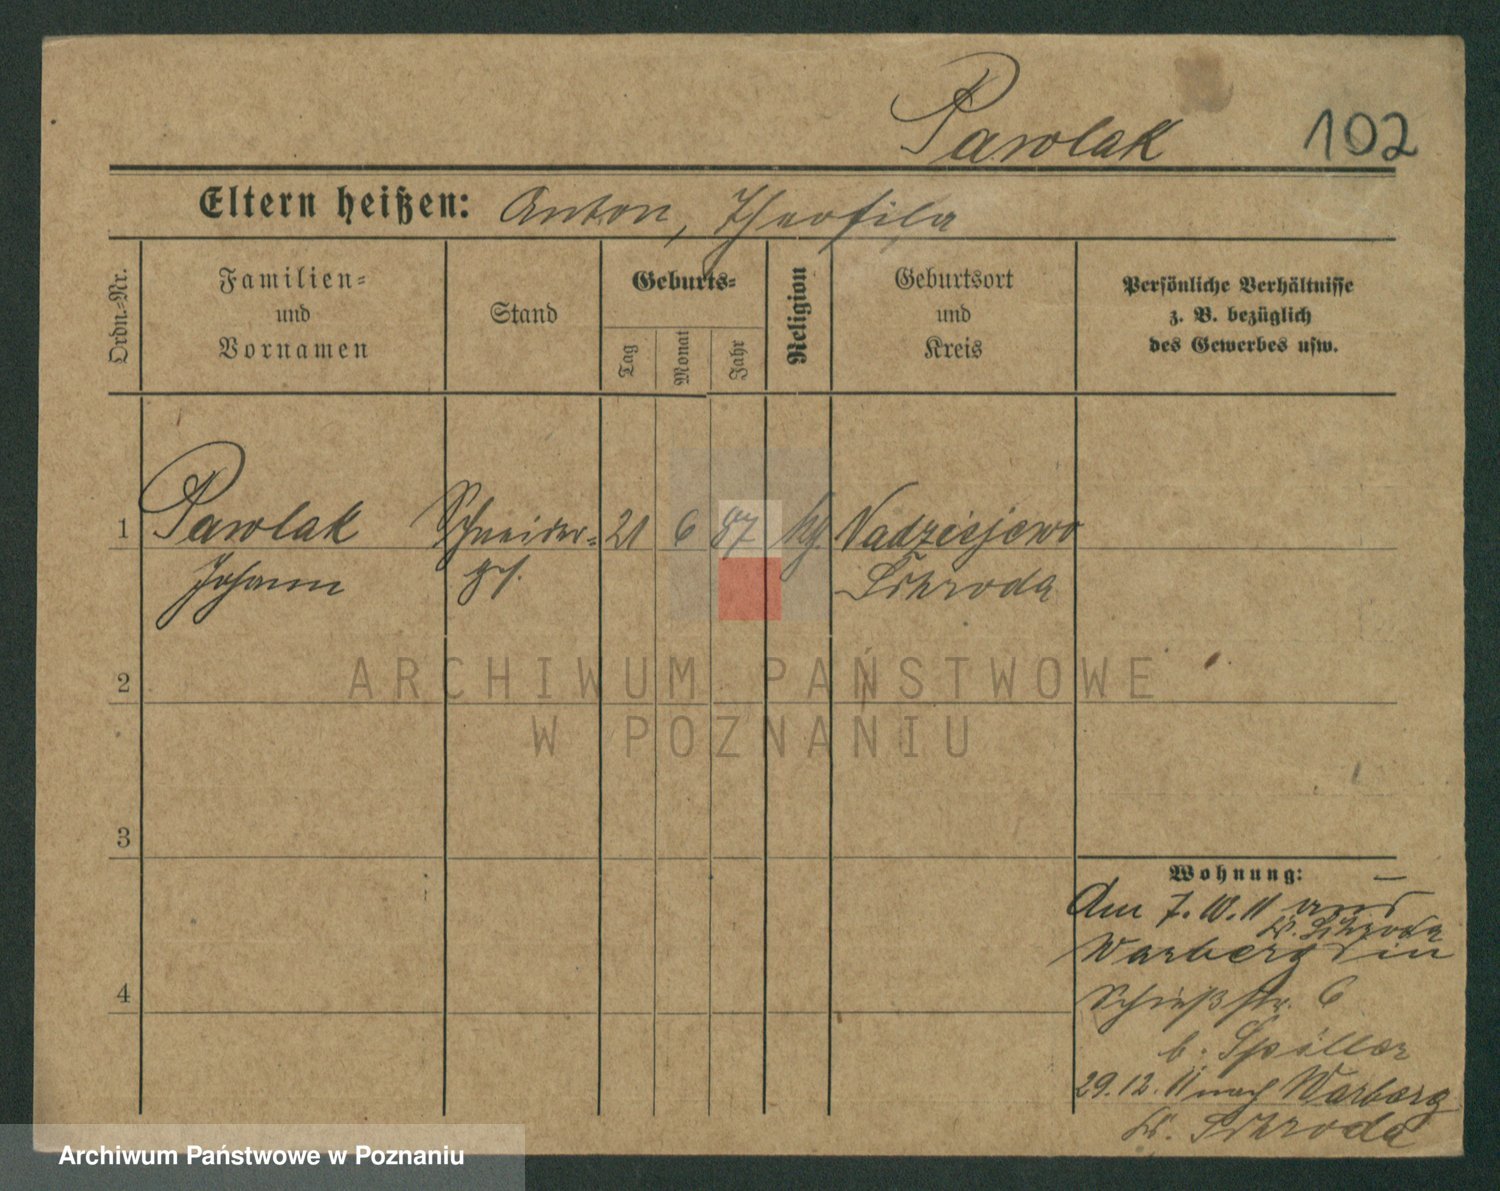 Pawlak 102
Eltern heißen: Anton, Theofila
Ordn.-Nr.
Familien-
und
Vornamen
Stand
Geburts-
Tag
Monat
Jahr
Religion
Geburtsort
und
Kreis
Persönliche Verhältnisse
z. B. bezüglich
des Gewerbes usw.
1 Pawlak Schneider- 21 6 87 Nadzisjewo
Johann ges. Schroda
2
3
4
Wohnung:
Am 7.10.11 aus
Kr. Schroda
Warberg in
Schießstr. 6
b. Spiller
29.12.11 nach Warberg
Kr. Schroda
ARCHIWUM PAŃSTWOWE
W POZNANIU
Archiwum Państwowe w Poznaniu